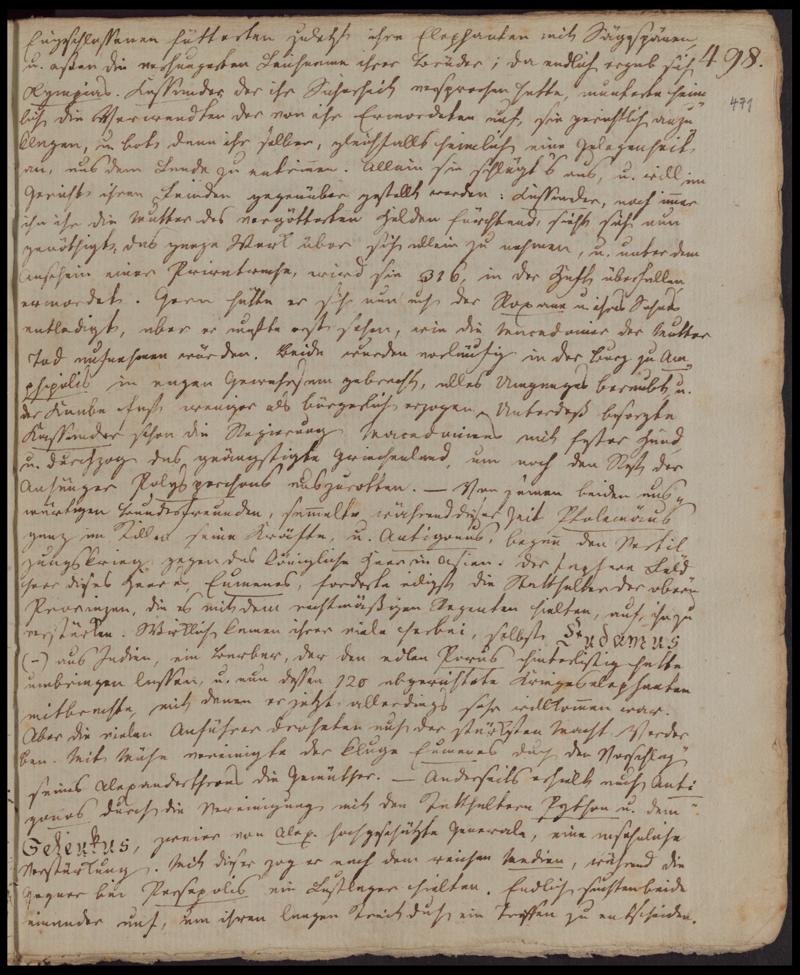 Eingeschlossenen fütterten zuletzt ihre Elephanten mit Sägespänen,
u. aßen die verhungerten Leichname ihrer Brüder; da endlich ergab sich 498.
Olympias. Kassander der ihr Sicherheit versprochen hatte, munterte heim
471
lich die Verwandten der von ihr Ermordeten auf, sie gerichtlich anzu
klagen, u. bot dann ihr selber, gleichfalls heimlich eine Gelegenheit
an, aus dem Lande zu entrinnen. Allein sie schlägt's aus, u. will im
Gericht ihren Feinden gegenüber gestellt werden: Kassander, noch immer
in ihr die Mutter des vergötterten Helden fürchtend, sieht sich nun
genöthigt, das ganze Werk über sich allein zu nehmen, u. unter dem
Anschein einer Privatrache, wird sie 316, in der Haft überfallen,
ermordet. Gern hätte er sich nun auch der Roxane u. ihres Sohnes
entledigt, aber er mußte erst sehen, wie die Macedonier der Mutter
Tod aufnehmen würden. Beide wurden vorläufig in der Burg zu Am
phipolis in engen Gewahrsam gebracht, alles Umganges beraubt, u.
der Knabe fast weniger als bürgerlich erzogen. Unterdeß besorgte
Kassander schon die Regierung Macedoniens mit fester Hand,
u. durchzog das geängstigte Griechenland, um noch den Rest der
Anhänger Polysperchons auszurotten. — Von jenen beiden aus
wärtigen Bundesfreunden, sammelte während dieser Zeit Ptolemäus
ganz im Stillen seine Kräfte, u. Antigonus, begann den Vertil
gungskrieg gegen das königliche Heer in Asien. Der tapfere Feld
herr dieses Heeres, Eumenes, forderte eiligst die Statthalter der obern
Provinzen, die es mit dem rechtmäßigen Regenten hielten, auf, ihn zu
verstärken. Wirklich kamen ihrer viele herbei, selbst Eudamus
(-) aus Indien, ein Barbar, der den edlen Porus hinterlistig hatte
umbringen lassen, u. nun dessen 120 abgerichtete Kriegselephanten
mitbrachte, mit denen er jetzt allerdings sehr willkommen war.
Aber die vielen Anführer drohten auch der stärksten Macht Verder
ben. Mit Mühe vereinigte der kluge Eumenes durch den Vorschlag
seines Alexanderthrons die Gemüther. — Anderseits erhielt auch Anti
gonos durch die Vereinigung mit den Statthaltern Python u. dem
Seleukus, zweier von Alex. hochgeschätzte Generale, eine ansehnliche
Verstärkung. Mit dieser zog er nach dem reichen Medien, während die
Gegner bei Persepolis ein Lustlager hielten. Endlich suchten beide
einander auf, um ihren langen Streit durch ein Treffen zu entscheiden.